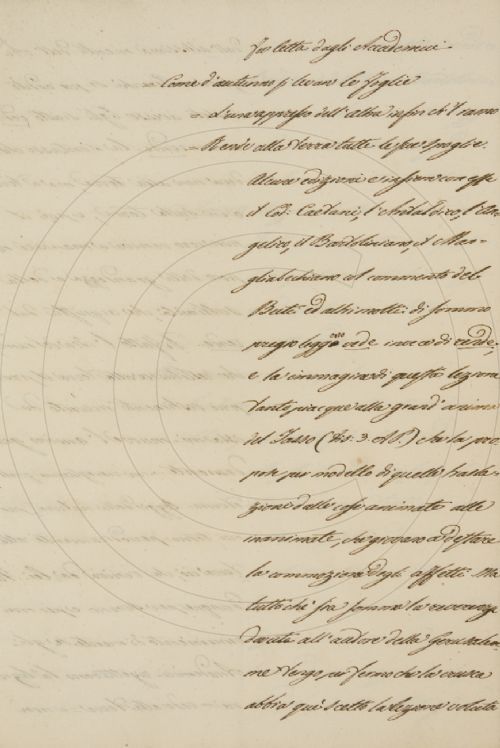 fu letta dagli Accademici.
Come d'autunno si levan le foglie
L'una appresso dell'altra infin ch'il ramo
Rende alla terra tutte le sue spoglie.
Alcune edizioni e insieme con esse
il Cod. Caetani, l'Antaldino, l'An-
gelico, il Bartoliniano, il Ma-
gliabechiano col commento del
Buti ed altri molti di sommo
pregio leggono vede invece di rende,
e la immagine di questa lezione
tanto piacque alla grand'anima
del Tasso (Dis. 3. A.P.) che la pro
pose per modello di quelle trasla-
zioni dalle cose animate alle
inanimate, che giovano a destare
la commozione degli affetti. Ma
tuttochè sia somma la riverenza
dovuta all'autore della Gerusalem
me tengo per fermo che la crusca
abbia qui scelto la lezione voluta